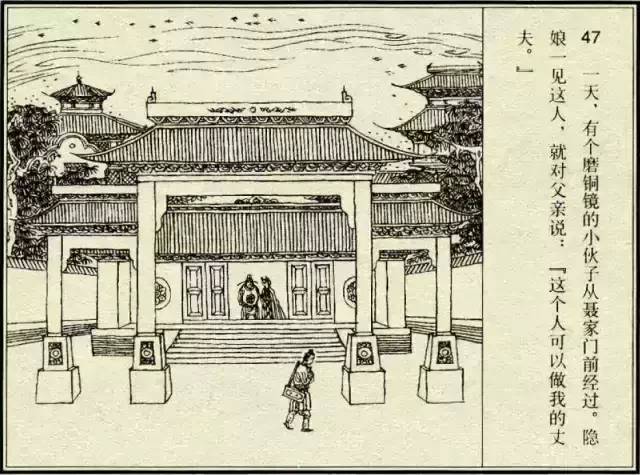 47 一天，有个磨铜镜的小伙子从聂家门前经过。隐
娘一见这人，就对父亲说：『这个人可以做我的丈
夫。』